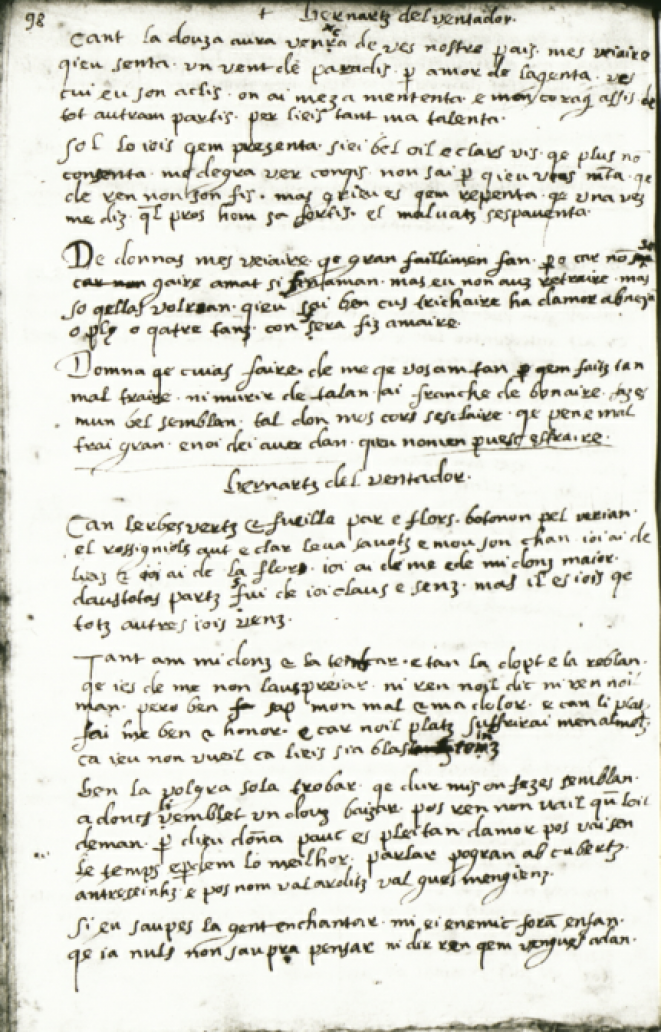 98
+ Bernartz del ventador.
Cant la douza aura venta de ves nostre pais. mes veiaire
qieu senta. vn vent de paradis. p amor de lagenta. ves
cui eu son aclis. on ai meza mententa. e mon corag assis de
tot autram partis. per lieis tant ma talenta.
Sol lo iois qem prezenta. siei bel oil e clars vis. qe plus no
consenta. me degra ver conqis. non sai p qieu vos mta. qe
de ren non son fis. mas grieu es qem repenta. qe vna vez
me diz. ql pros hom sa fortis. el malvatz sespaventa.
De donnas mes veiaire. qe gran faillimen fan. p o car no
car non gaire amat si fin aman. mas eu non auz retraire. mas
so qellas volran. qieu sai ben cus trichaire ha damor ab
o plus o qatre tanz. con sera fiz amaire.
Domna qe cuias faire. de me qe vos am tan p qem faitz tan
mal traire. ni murir de talan. ai franche de bonaire. fezes
mun bel semblan. tal don mos cors sesclaire. qe pene mal
trai gran. e noi dei auer dan. qieu nomen puesc estraire.
Bernartz del ventador.
Can lerbes vertz & fueilla par e flors. botonon pel verian.
el rossignols aut e clar leva sa votz e mou son chan. ioi ai de
luaz & ioi ai de la flors. ioi ai de me e de mi donz maior.
daustotas partz sui de ioi claus e senz. mas il es iois qe
totz autres iois venz.
Tant am mi donz & la tenc car. e tan la dopt e la reblan.
qe ies de me non laus preiar. ni ren noil dic ni ren noil
man. pero ben sap mon mal & ma dolor. e can li plai
fai me ben & honor. e car noil platz suffrirai men al
ca ieu non vueil ca lieis sia blas
ben la volgra sola trobar. qe dur mis on fezes semblan.
adoncs lemblet vn douz baizar. pos ren non vail qu loil
deman. p dieu dona pauc es pleitan. damor pos vai sen
le temps e perdem lo meilhor. parlar pogran ab cubertz
antresseinhz e pos nom val arditz val gues mengienz.
Si eu saupes la gent enchantar. mi ei enemic foran enfan.
qe ia nuls non saupra pensar ni dir ren qem vengues adan.